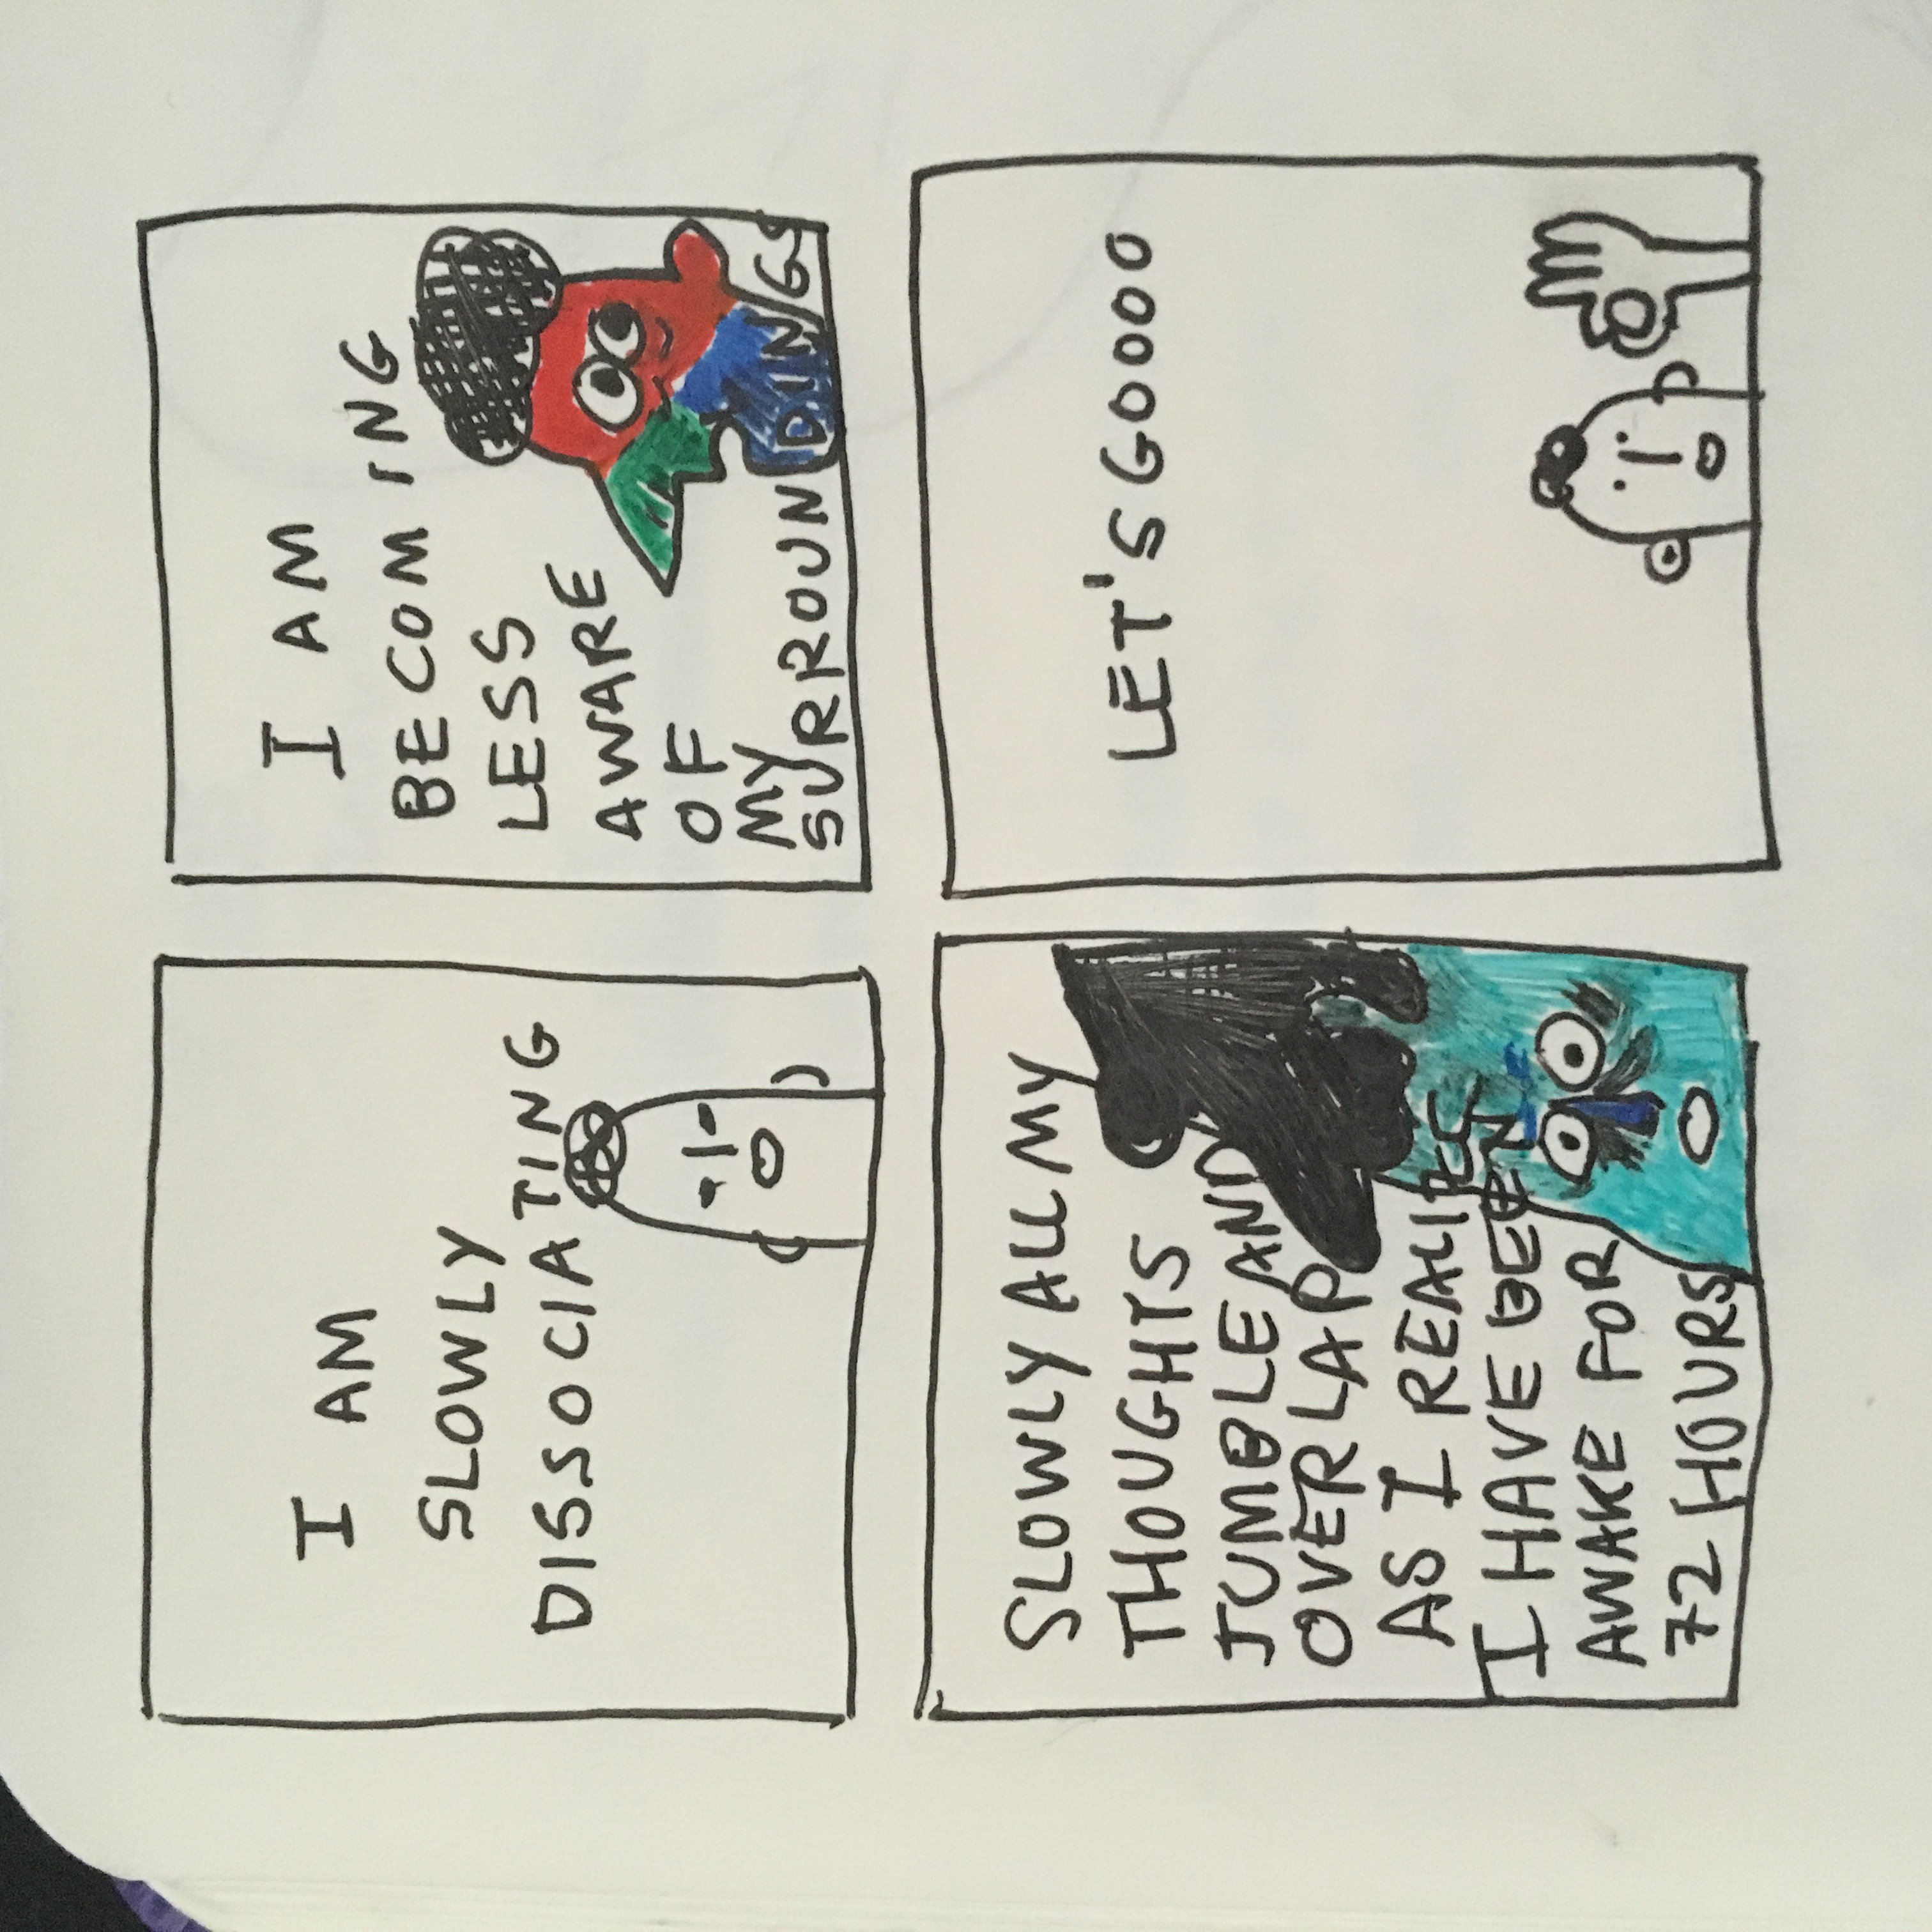 I AM
SLOWLY
DISSOCIATING
I AM
BECOMING
LESS
AWARE
OF
MY
SURROUNDINGS
SLOWLY ALL MY
THOUGHTS
JUMBLE AND
OVERLAP
AS I REALISE
I HAVE BEEN
AWAKE FOR
72 HOURS
LET'S GOOOO